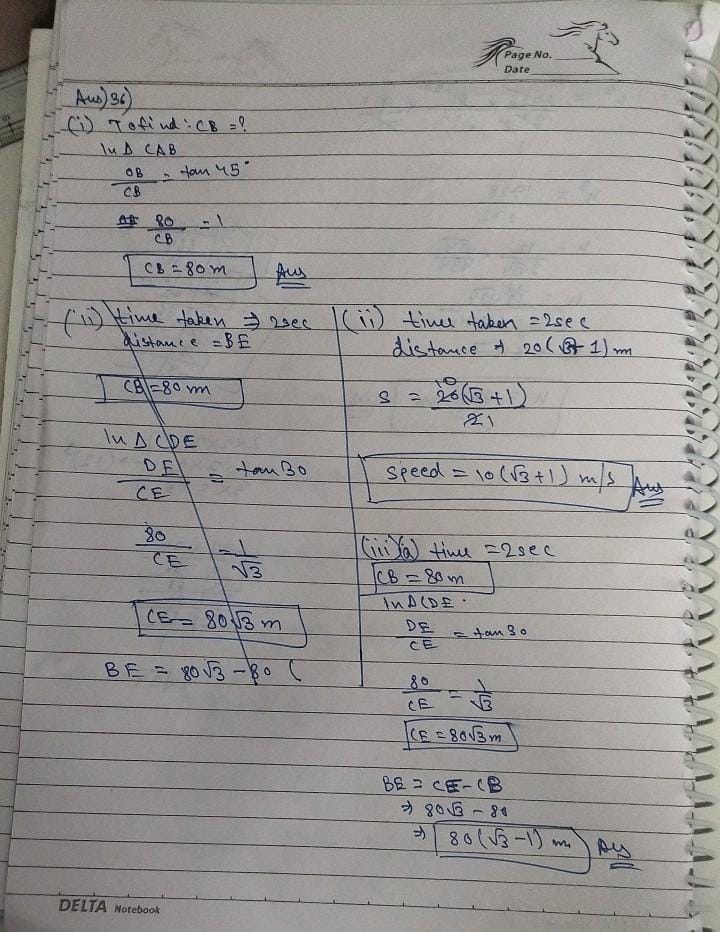 Page No.
Date
Ans) 36)
(i) To find : CB = ?
In Δ CAB
OB/CB = tan 45°
80/CB = 1
CB = 80 m Ans
(ii) time taken ⇒ 2sec
distance = BE
CB = 80 m
In Δ CDE
DE/CE = tan 30
80/CE = 1/√3
CE = 80√3 m
BE = 80√3 - 80 (
(ii) time taken = 2sec
distance ⇒ 20(√3+1) m
s = 20(√3+1)/2 10 1
speed = 10(√3+1) m/s Ans
(iii)(a) time = 2sec
CB = 80 m
In Δ CDE.
DE/CE = tan 30
80/CE = 1/√3
CE = 80√3 m
BE = CE - CB
⇒ 80√3 - 80
⇒ 80(√3-1) m Ans
DELTA Notebook